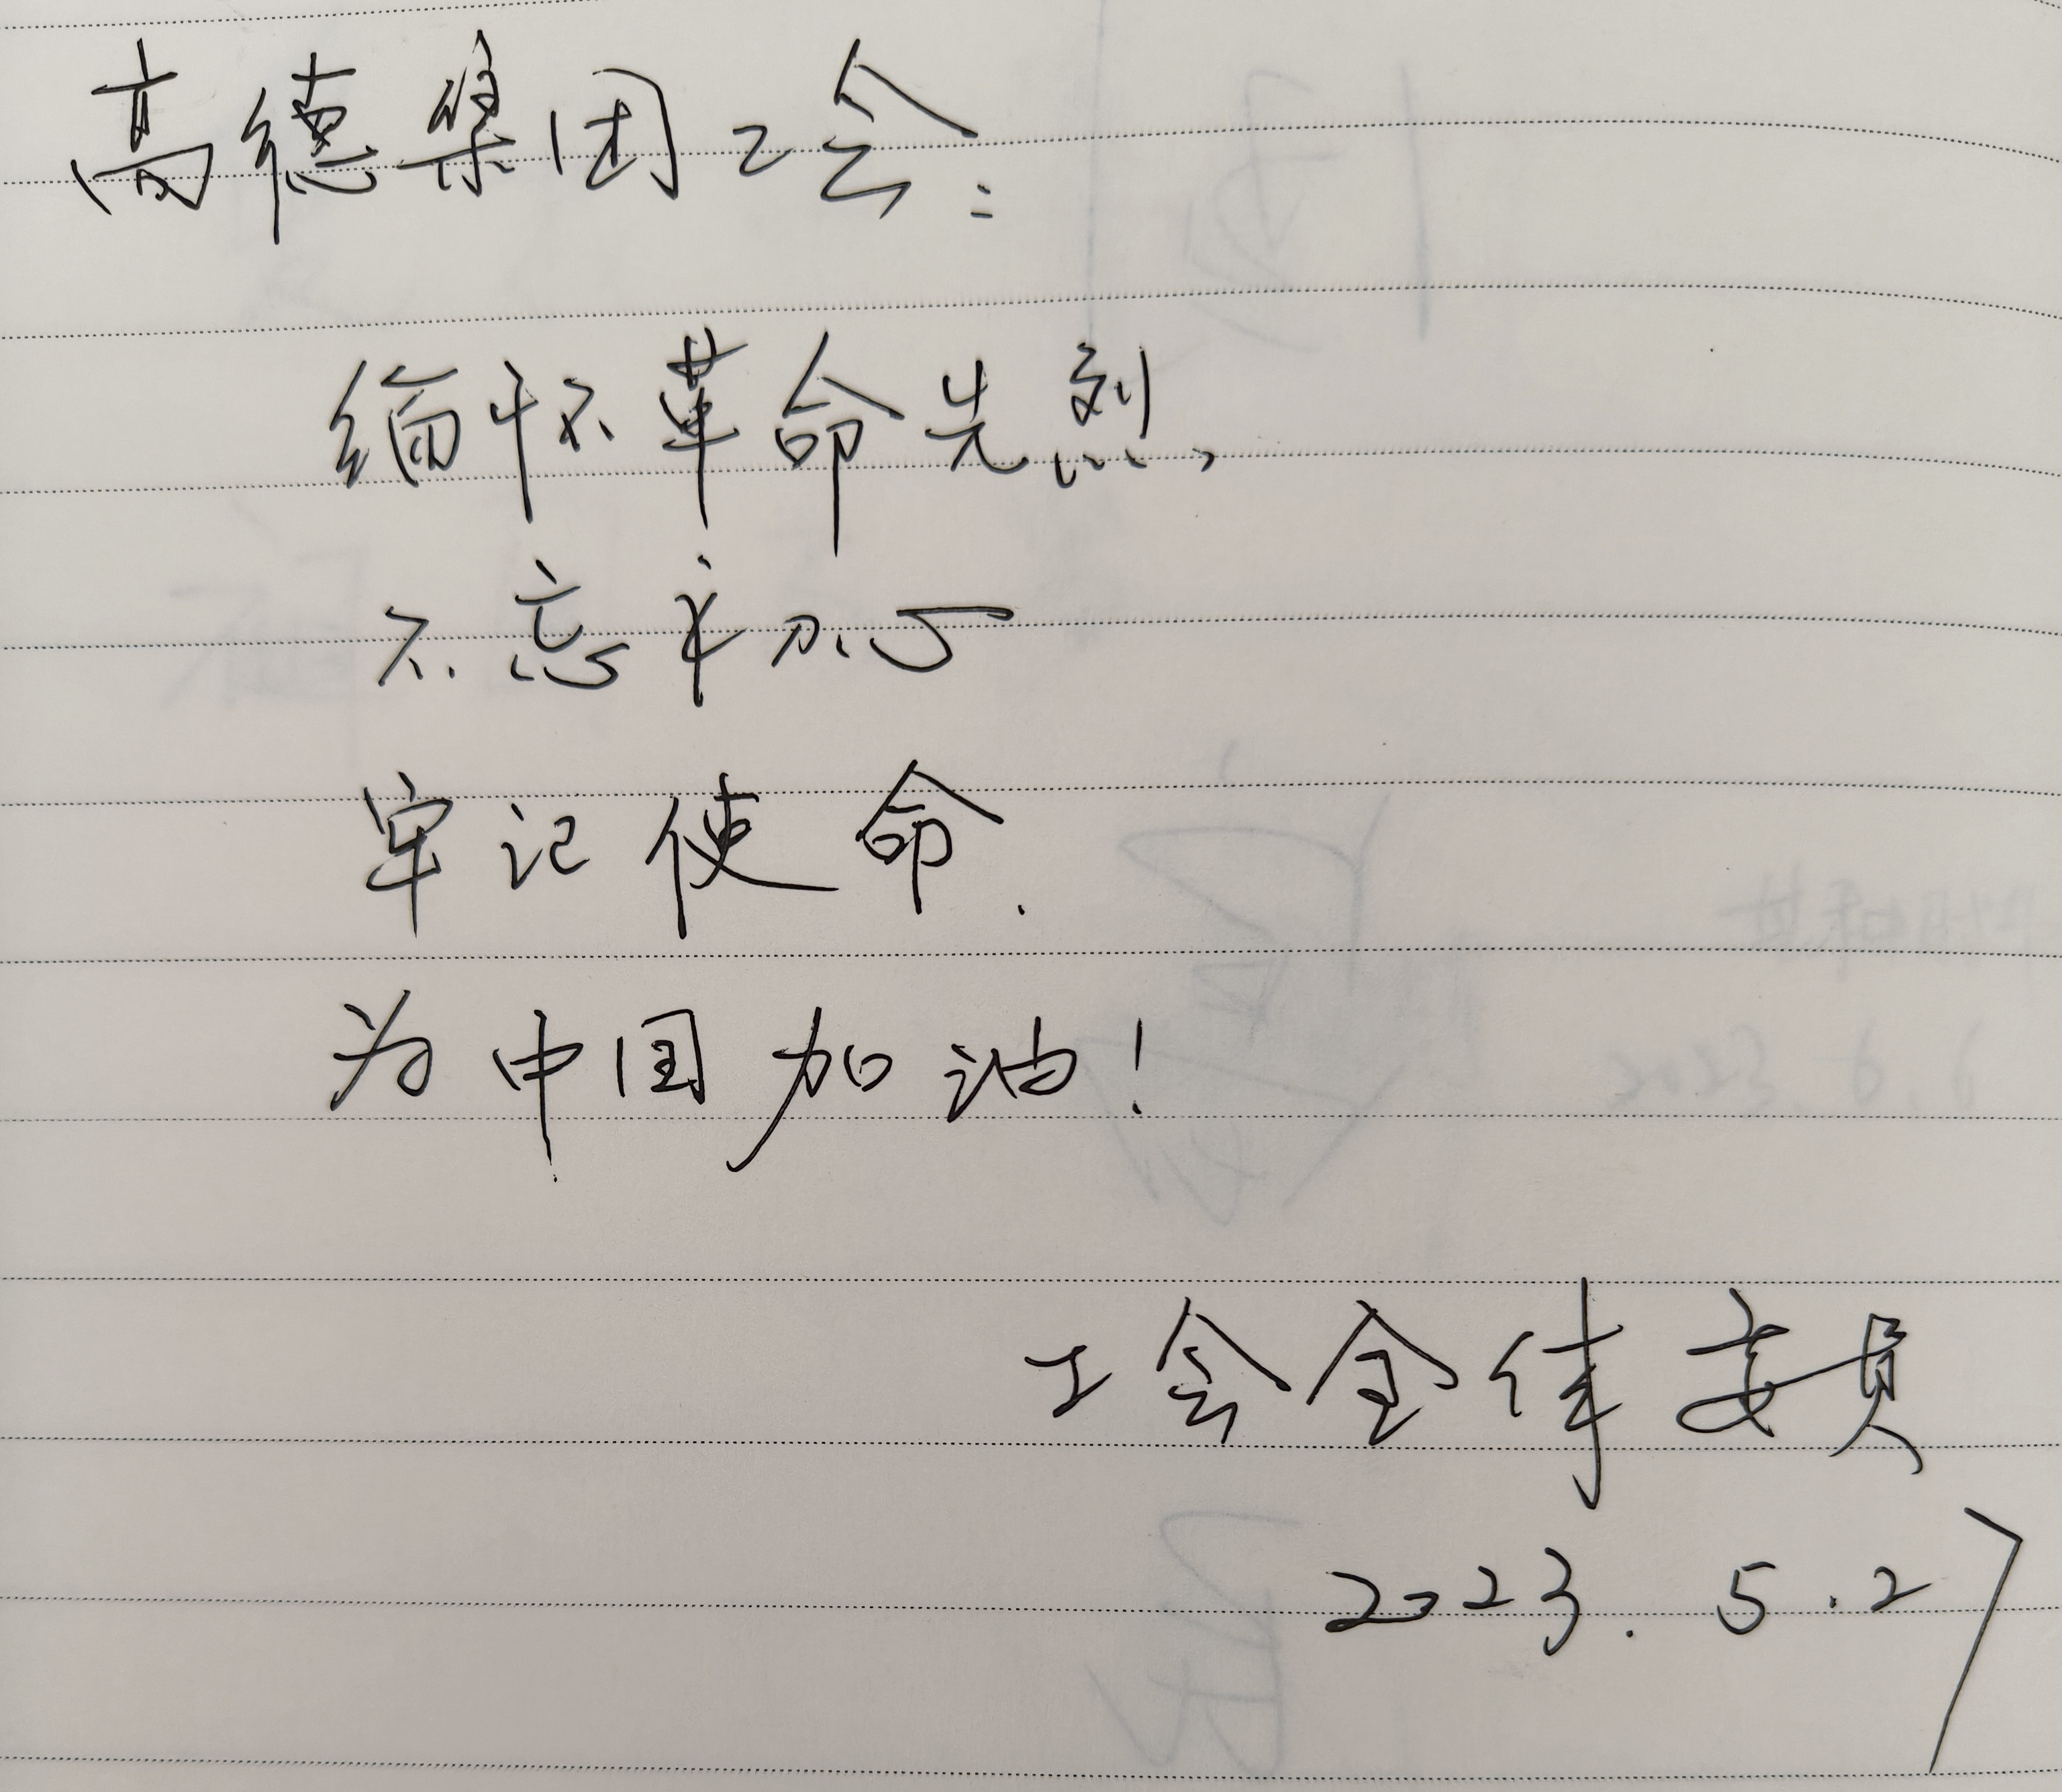 高德集团工会：
缅怀革命先烈，
不忘初心
牢记使命.
为中国加油！
工会全体委员
2023.5.27